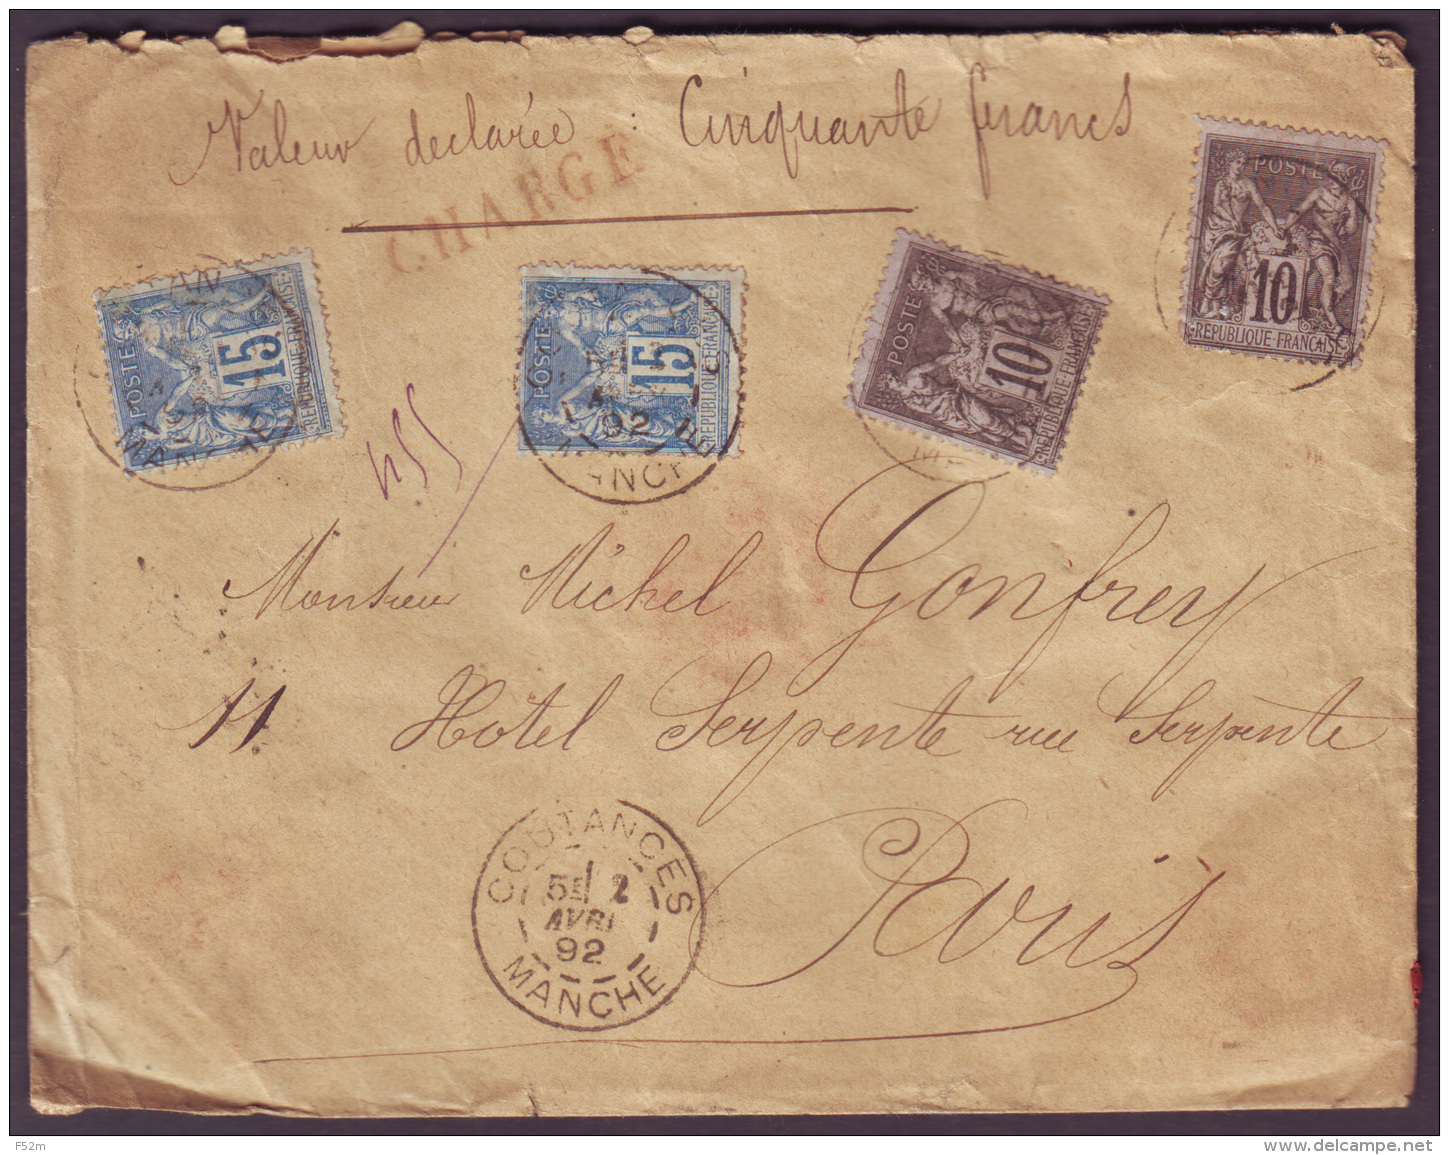 Valeur declarée : Cinquante francs
CHARGÉ
POSTES
10
REPUBLIQUE FRANÇAISE
POSTES
15
REPUBLIQUE FRANÇAISE
POSTES
15
REPUBLIQUE FRANÇAISE
92
MANCHE
POSTES
10
REPUBLIQUE FRANÇAISE
455
Monsieur Michel Gonfrey
11 Hôtel Serpente rue Serpente
Paris
COUTANCES
5E 2
AVRI
92
MANCHE
F52m
delcampe.net